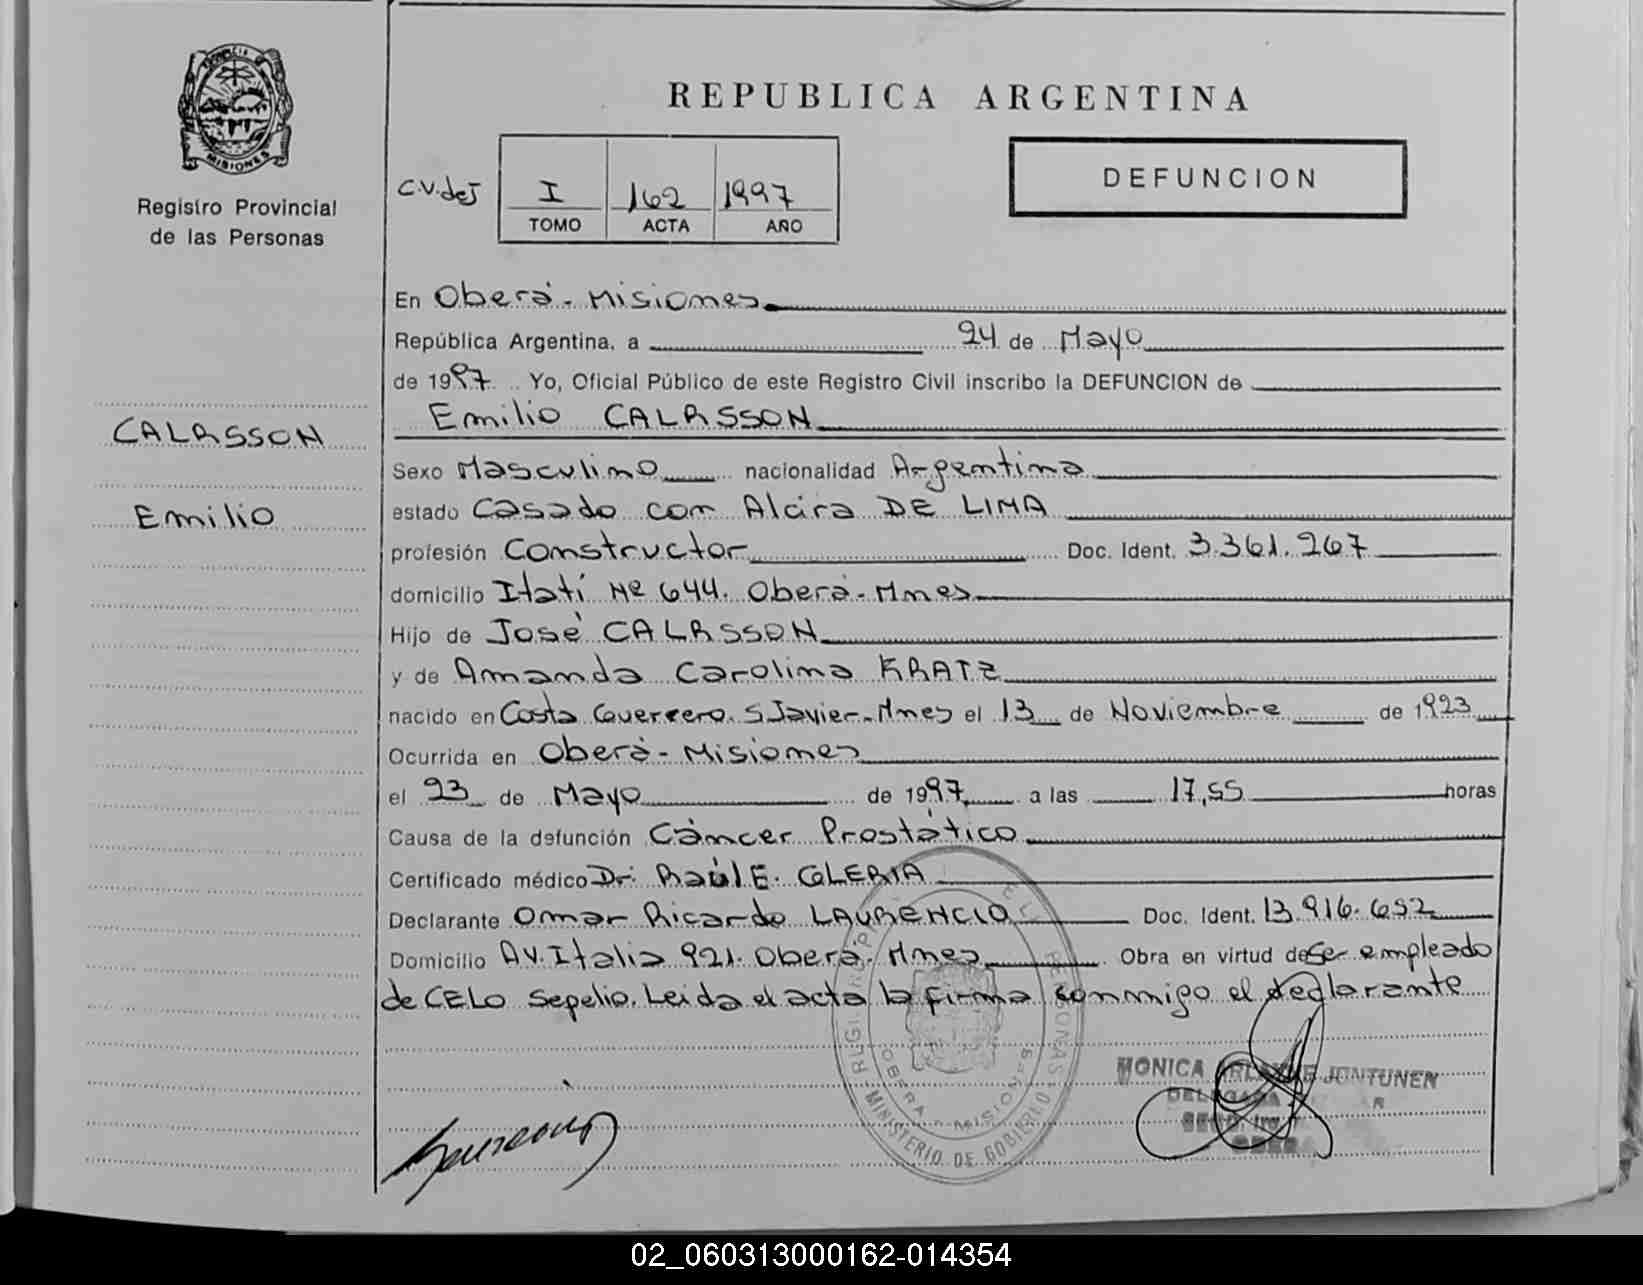 PROVINCIA DE
MISIONES
Registro Provincial
de las Personas
CALRSSON
Emilio
REPUBLICA ARGENTINA
C.V.deJ
I 162 1997
TOMO ACTA AÑO
DEFUNCION
En Oberá - Misiones
República Argentina, a 24 de Mayo
de 1997 Yo, Oficial Público de este Registro Civil inscribo la DEFUNCION de
Emilio CALRSSON
Sexo Masculino nacionalidad Argentina
estado Casado con Alcira DE LIMA
profesión Constructor Doc. Ident. 3.361.267
domicilio Itatí Nº 644. Oberá - Mnes
Hijo de José CALRSSON
y de Amanda Carolina KRATZ
nacido en Costa Guerrero. S Javier - Mnes el 13 de Noviembre de 1923
Ocurrida en Oberá - Misiones
el 23 de Mayo de 1997 a las 17,55 horas
Causa de la defunción Cáncer Prostático
Certificado médico Dr. Raúl E. GLERIA
Declarante Omar Ricardo LAURENCIO Doc. Ident. 13.916.652
Domicilio AV. Italia 921. Oberá - Mnes Obra en virtud de Ser empleado
de CELO Sepelio. Leida el acta la firma conmigo el declarante
MINISTERIO DE GOBIERNO
OBERA - MISIONES
MONICA JUNTUNEN
DELEGADA
02_060313000162-014354